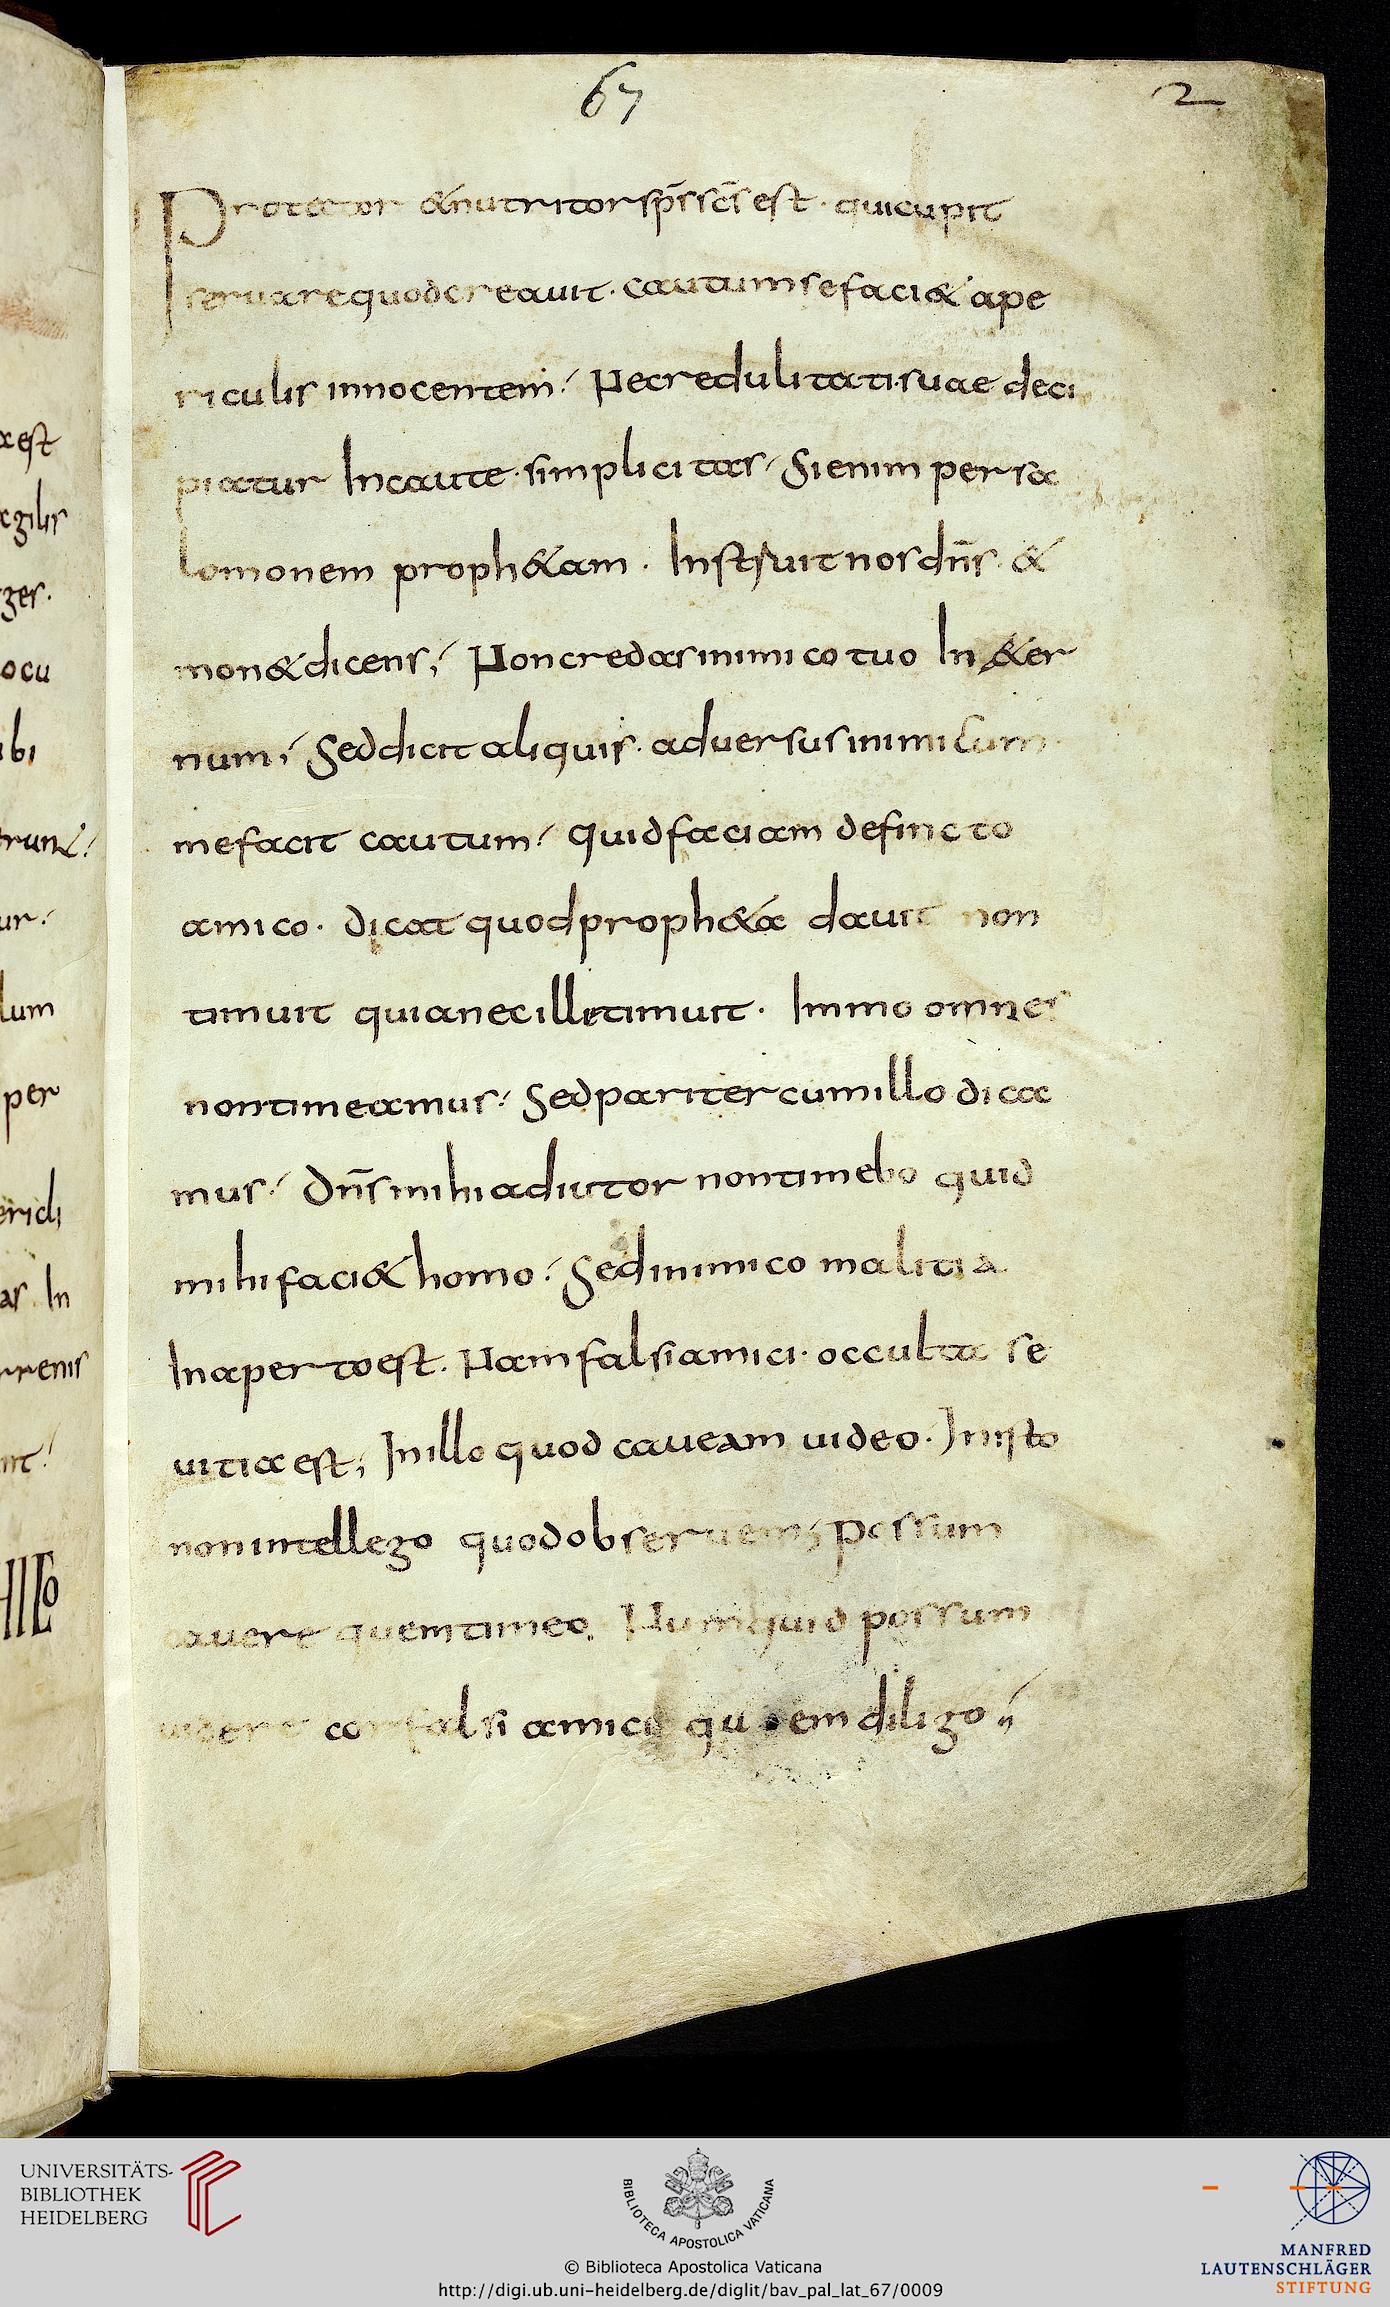 67
2
Protector & nutritor sp̄s sc̄s est · qui cupit
seruare quod creauit · cautum se faci& ape
riculis innocentem Ne credulitati suae deci
piatur Incaute · simplicitas Si enim per sa
lomonem proph&am · Instruit nos dn̄s &
mon& dicens; Non credas inimico tuo In &er
num Sed dicit aliquis · aduersus inimicum
me facit cautum quid faciam de fincto
amico · dicat quod proph&a dauit non
timuit quia nec ille timuit · Immo omnes
non timeamus Sed pariter cum illo dica
mus Dn̄s mihi adiutor non timebo quid
mihi faci& homo Sed inimico malitia
In aperto est. Nam falsi amici · occulta se
uitia est; In illo quod caueam uideo · In isto
non intellego quod obseruem; possum
cauere quem timeo. Numquid possum
uidere cor falsi amici quem diligo
xest
gilis
ger.
ocu
ibi
ur
lum
per
as In
UNIVERSITÄTS-
BIBLIOTHEK
HEIDELBERG
BIBLIOTECA APOSTOLICA VATICANA
© Biblioteca Apostolica Vaticana
http://digi.ub.uni-heidelberg.de/diglit/bav_pal_lat_67/0009
MANFRED
LAUTENSCHLÄGER
STIFTUNG